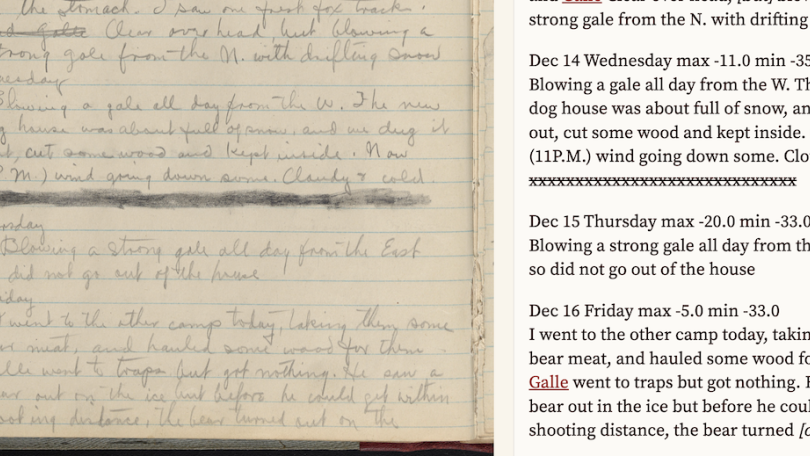 the stomach. I saw one fresh fox tracks.
Galle Clear over head, but blowing a
strong gale from the N. with drifting snow
Blowing a gale all day from the W. The new
house was about full of snow, and we dug it
out, cut some wood and kept inside. Now
P.M.) wind going down some. Cloudy & cold
Blowing a strong gale all day from the East
did not go out of the house
went to the other camp today, taking them some
meat, and hauled some wood for them.
went to traps but got nothing. He saw a
out on the ice but before he could get within
shooting distance, the bear turned out on the
strong gale from the N. with drifting
Dec 14 Wednesday max -11.0 min -35
Blowing a gale all day from the W. Th
dog house was about full of snow, an
out, cut some wood and kept inside.
(11P.M.) wind going down some. Clo
xxxxxxxxxxxxxxxxxxxxxxxxxxxxx
Dec 15 Thursday max -20.0 min -33.0
Blowing a strong gale all day from th
so did not go out of the house
Dec 16 Friday max -5.0 min -33.0
I went to the other camp today, takin
bear meat, and hauled some wood fo
Galle went to traps but got nothing.
bear out in the ice but before he coul
shooting distance, the bear turned [o